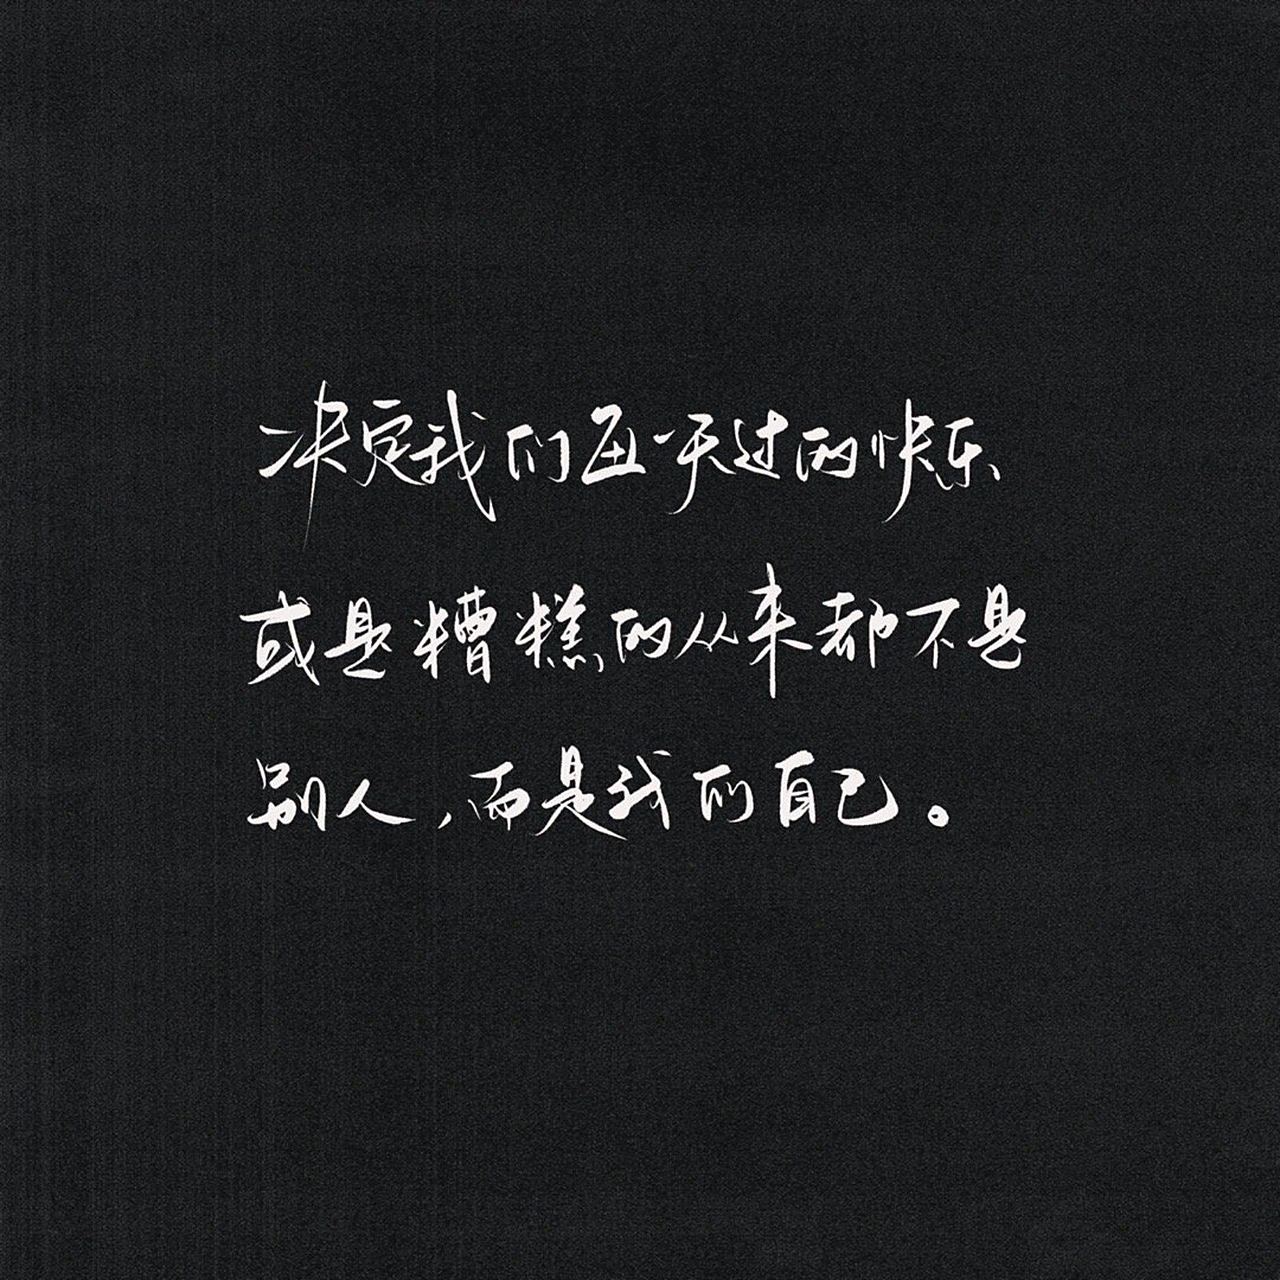 决定我们每一天过的快乐
或是糟糕的从来都不是
别人，而是我们自己。